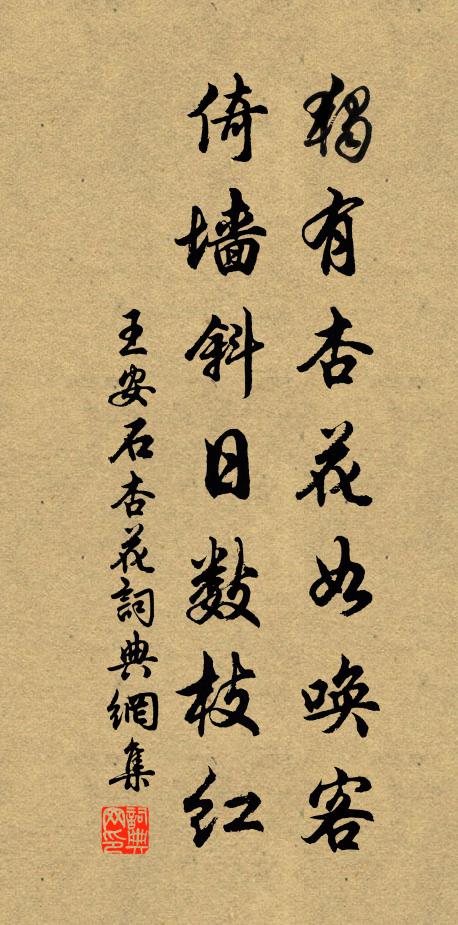 獨有杏花如喚客
倚墻斜日數枝紅
王安石杏花詞典網集
詞典网印